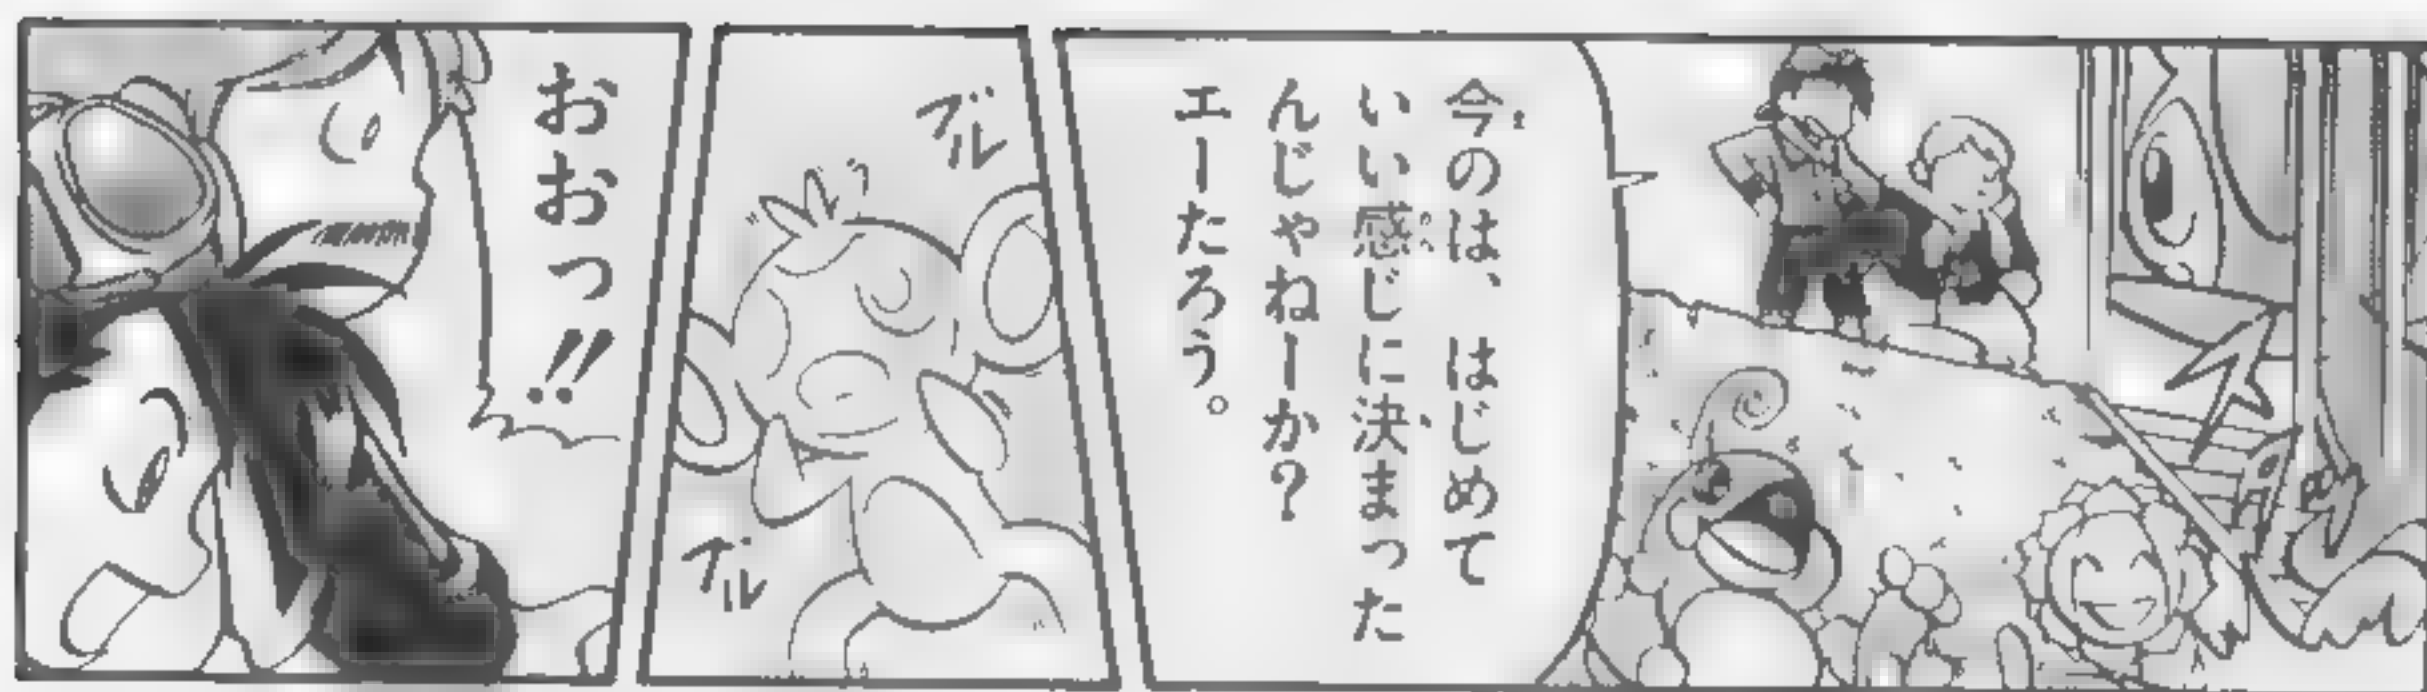 今のは、はじめて
いい感じに決まった
んじゃねーか？
エーたろう。
ブル
ブル
おおっ!!